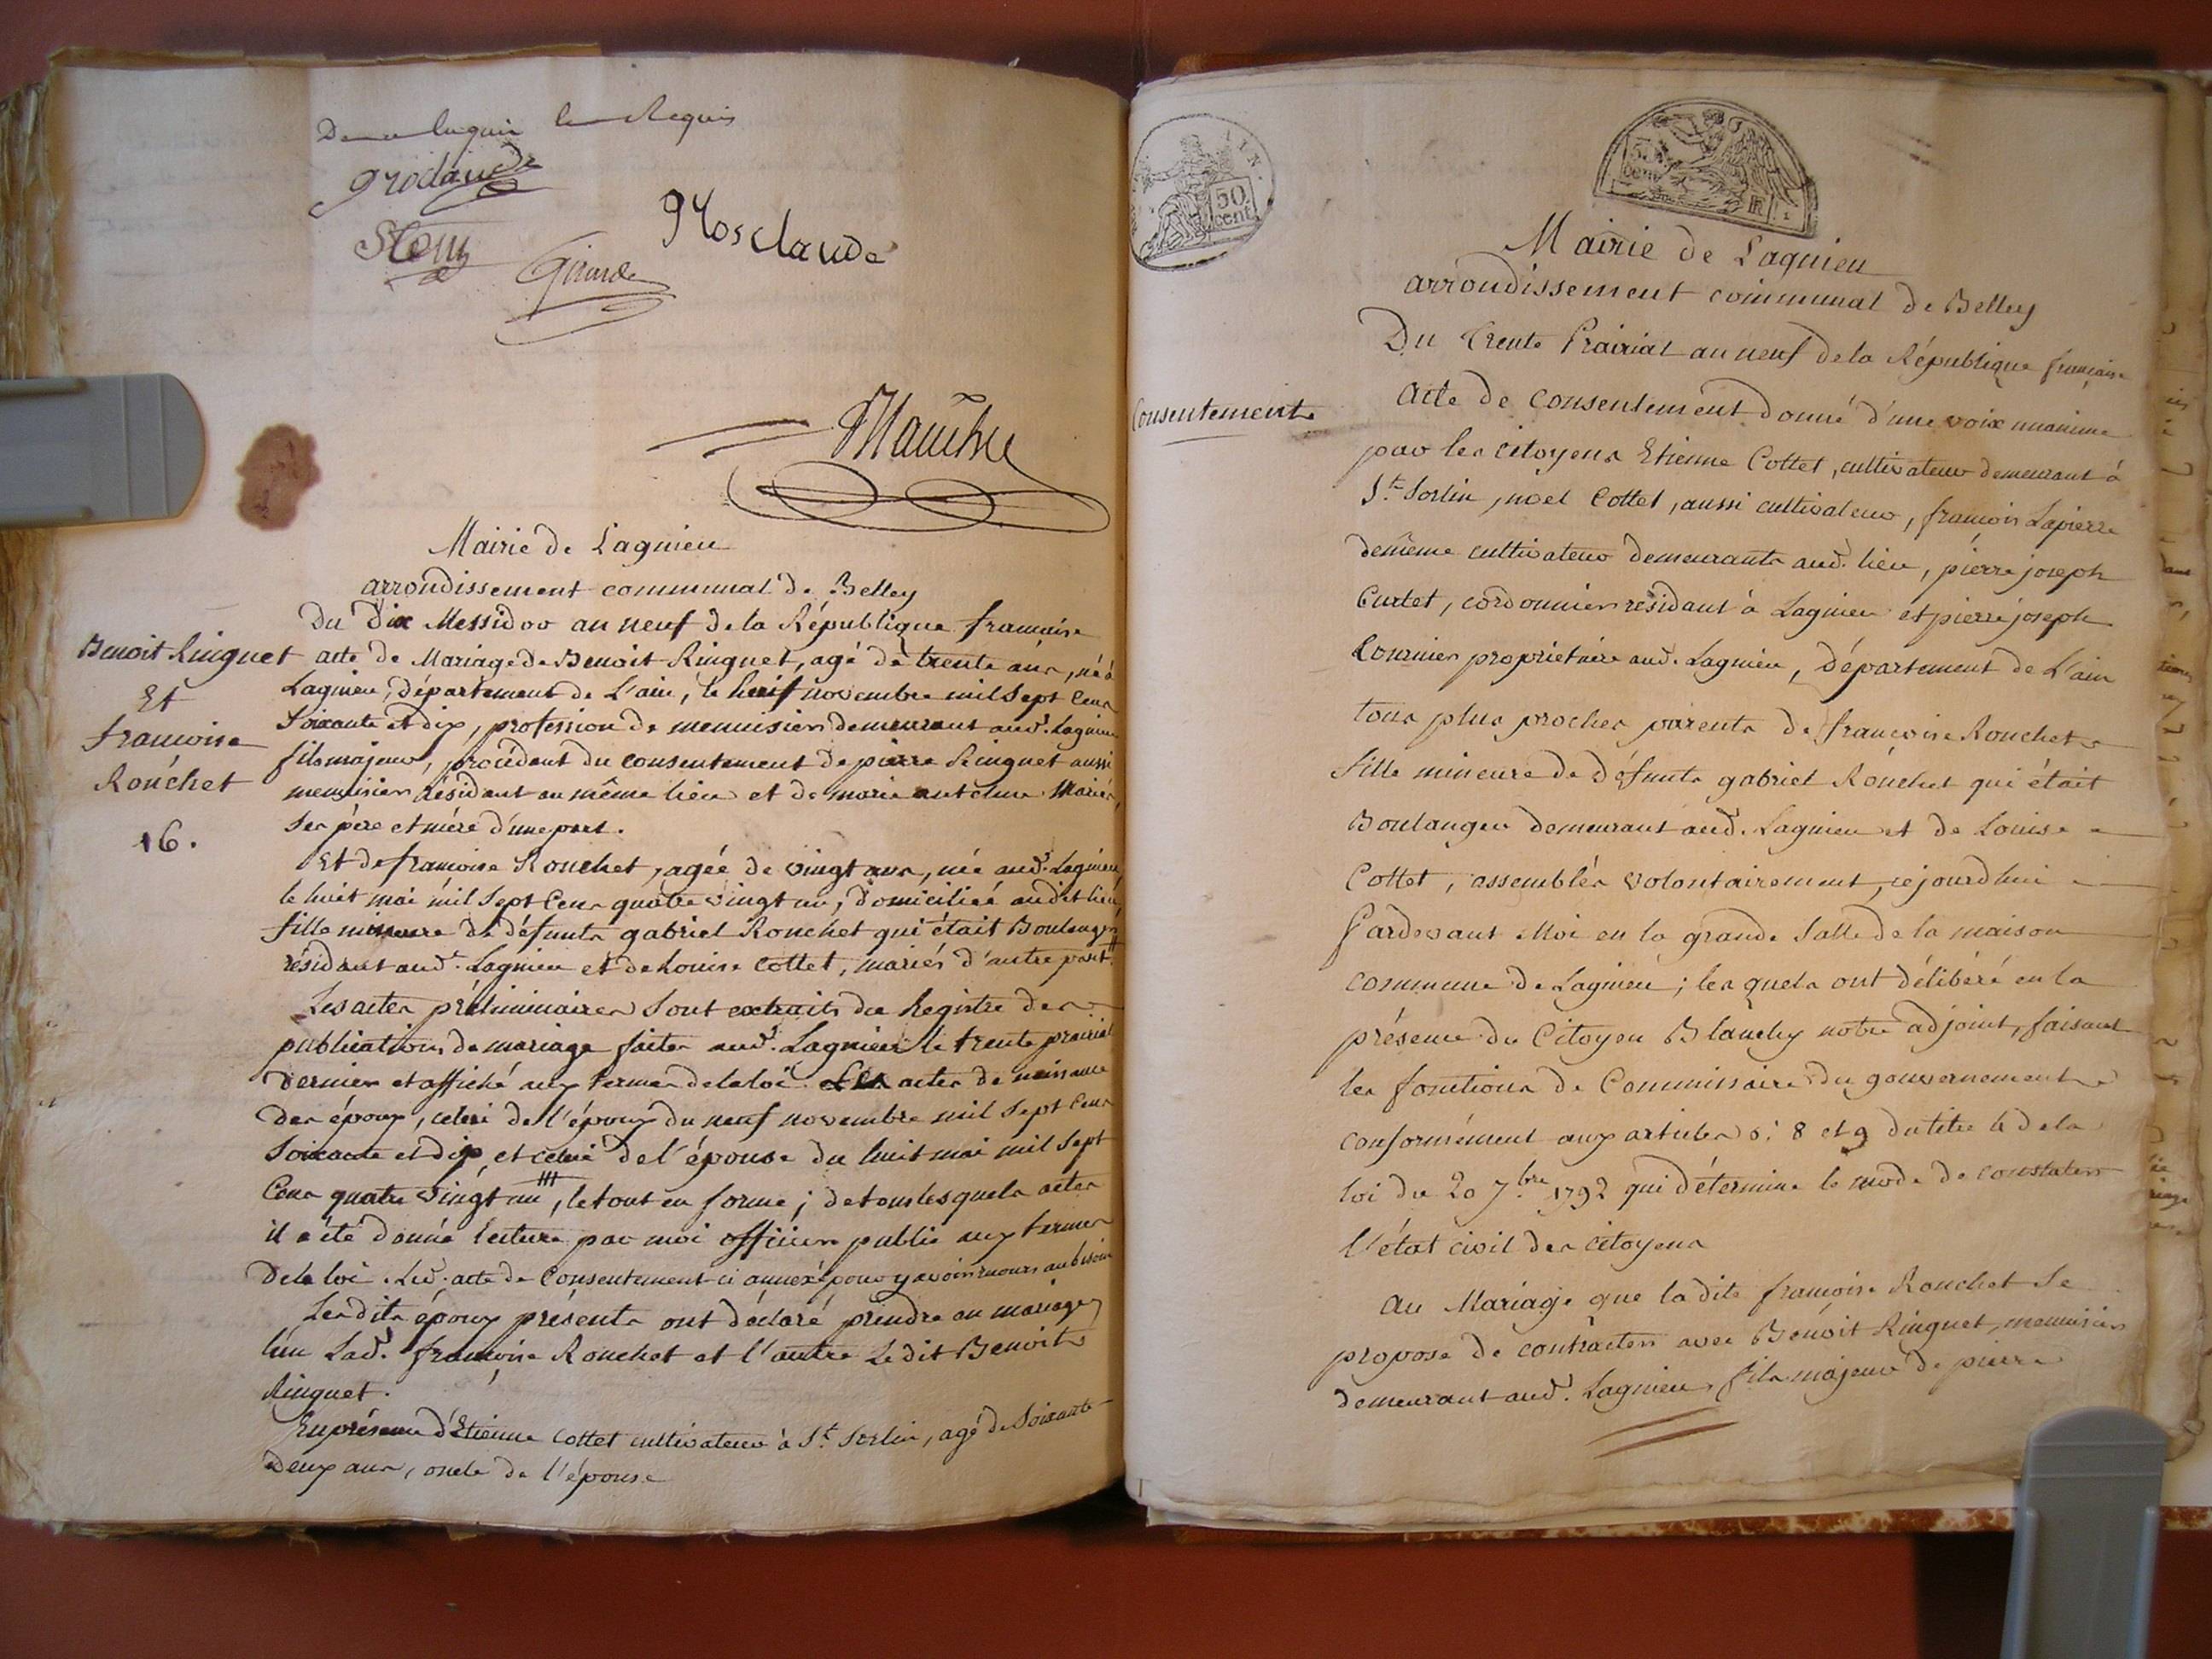 De ce Requis
Grosclaude
Girard
Mairie de Lagnieu
arrondissement communal de Belley
Du Dix Messidor an neuf de la République francaise
Benoit Ringuet
Et
francoise
Rouchet
16.
acte de Mariage de Benoit Ringuet, agé de trente ans, né à
Lagnieu, Département de L'ain, le neuf novembre mil sept cens
Soixante et dix, profession de menuisier demeurant aud. Lagnieu
fils majeur, procédant du consentement de pierre Ringuet aussi
menuisier résidant au même lieu et de marie antelme Mariés,
Ses père et mère d'une part.
Et de francoise Rouchet, agée de vingt ans, née aud. Lagnieu
le huit mai mil Sept Cens quatre vingt un, domiciliée audit lieu,
fille mineure de défunts gabriel Rouchet qui était Boulanger
résidant aud. Lagnieu et de Louise Cottet, mariés d'autre part.
Les actes préliminaires Sont extraits du Registre des
publications de mariage faites aud. Lagnieu le trente prairial
Dernier et affiché aux termes de la loi. Les actes de naissance
des époux, celui de l'époux du neuf novembre mil Sept Cens
Soixante et dix, et celui de l'épouse du huit mai mil Sept
Cens quatre vingt un, le tout en forme; de tous lesquels actes
il a été donné lecture par moi officier public aux termes
De la loi. Led. acte de Consentement ci annexé pour y avoir recours au besoin
Lesdits époux présents ont déclaré prendre en mariage
l'un Lad. francoise Rouchet et l'autre Ledit Benoit
Ringuet.
En présence d'Etienne Cottet cultivateur à St. Sorlin, agé de Soixante
Deux ans, oncle de l'épouse
50
cent.
50
Cent.
RF
Mairie de Lagnieu
arrondissement communal de Belley
Du Trente Prairial an neuf de la République française
Consentement
Acte de Consentement donné d'une voix unanime
par les citoyens Etienne Cottet, cultivateur demeurant à
St. Sorlin, noel Cottet, aussi cultivateur, françois Lapierre
demême cultivateur demeurants aud. lieu, pierre joseph
Curtet, cordonnier résidant à Lagnieu et pierre joseph
propriétaire aud. Lagnieu, Département de L'ain
tous plus proches parents de françoise Rouchet
fille mineure de défunts gabriel Rouchet qui était
Boulanger demeurant aud. Lagnieu et de Louise
Cottet, assemblés volontairement, cejourdhui
Pardevant Moi en la grande Salle de la maison
commune de Lagnieu; lesquels ont délibéré en la
présence du Citoyen Blanchy notre adjoint, faisant
les fonctions de Commissaire du gouvernement
conformément aux articles 8 et 9 du titre 4 de la
loi du 20 7.bre 1792 qui détermine le mode de constater
l'état civil des citoyens
Au Mariage que ladite françoise Rouchet Se
propose de contracter avec Benoit Ringuet, menuisier
demeurant aud. Lagnieu, fils majeur de pierre